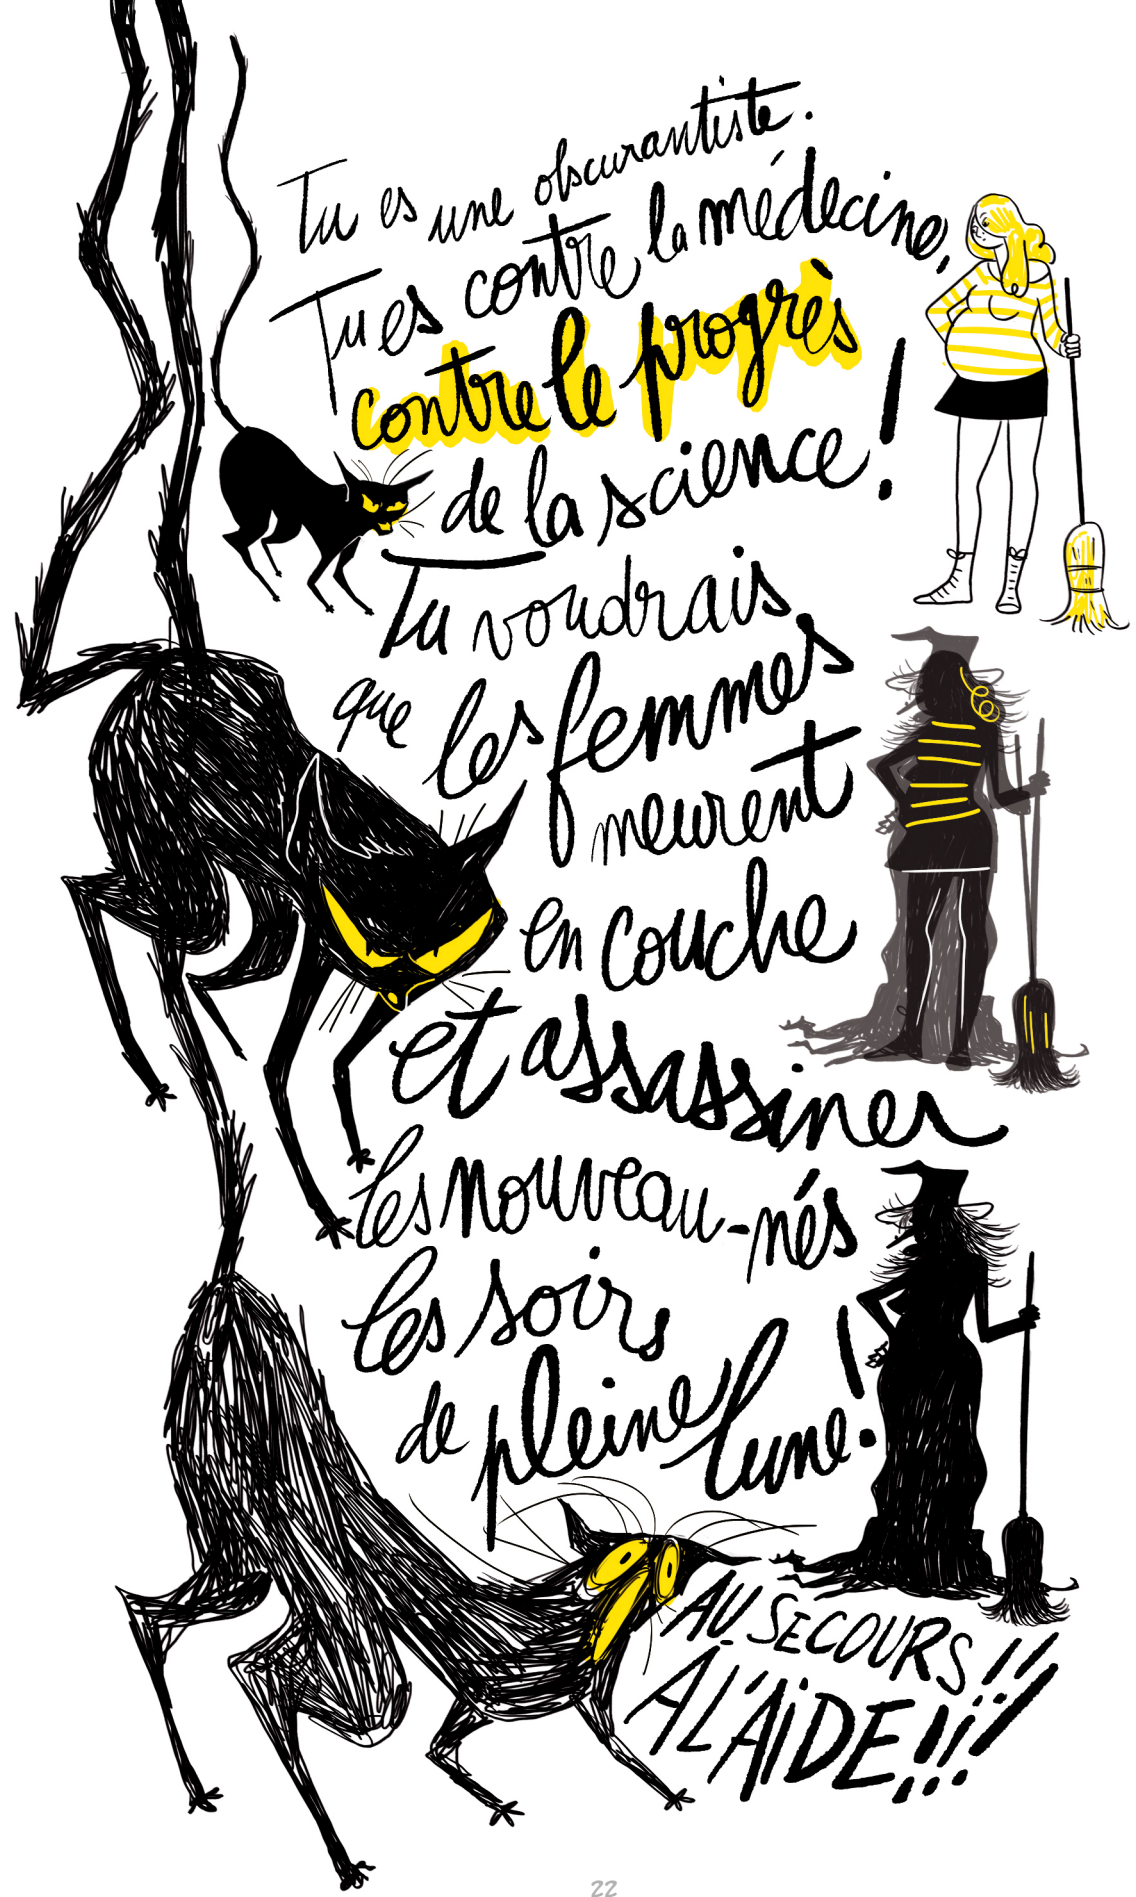 Tu es une obscurantiste.
Tu es contre la médecine,
contre le progrès
de la science !
Tu voudrais
que les femmes
meurent
en couche
et assassiner
les nouveau-nés
les soirs
de pleine lune !
AU SECOURS !!
A L'AIDE !!!
22